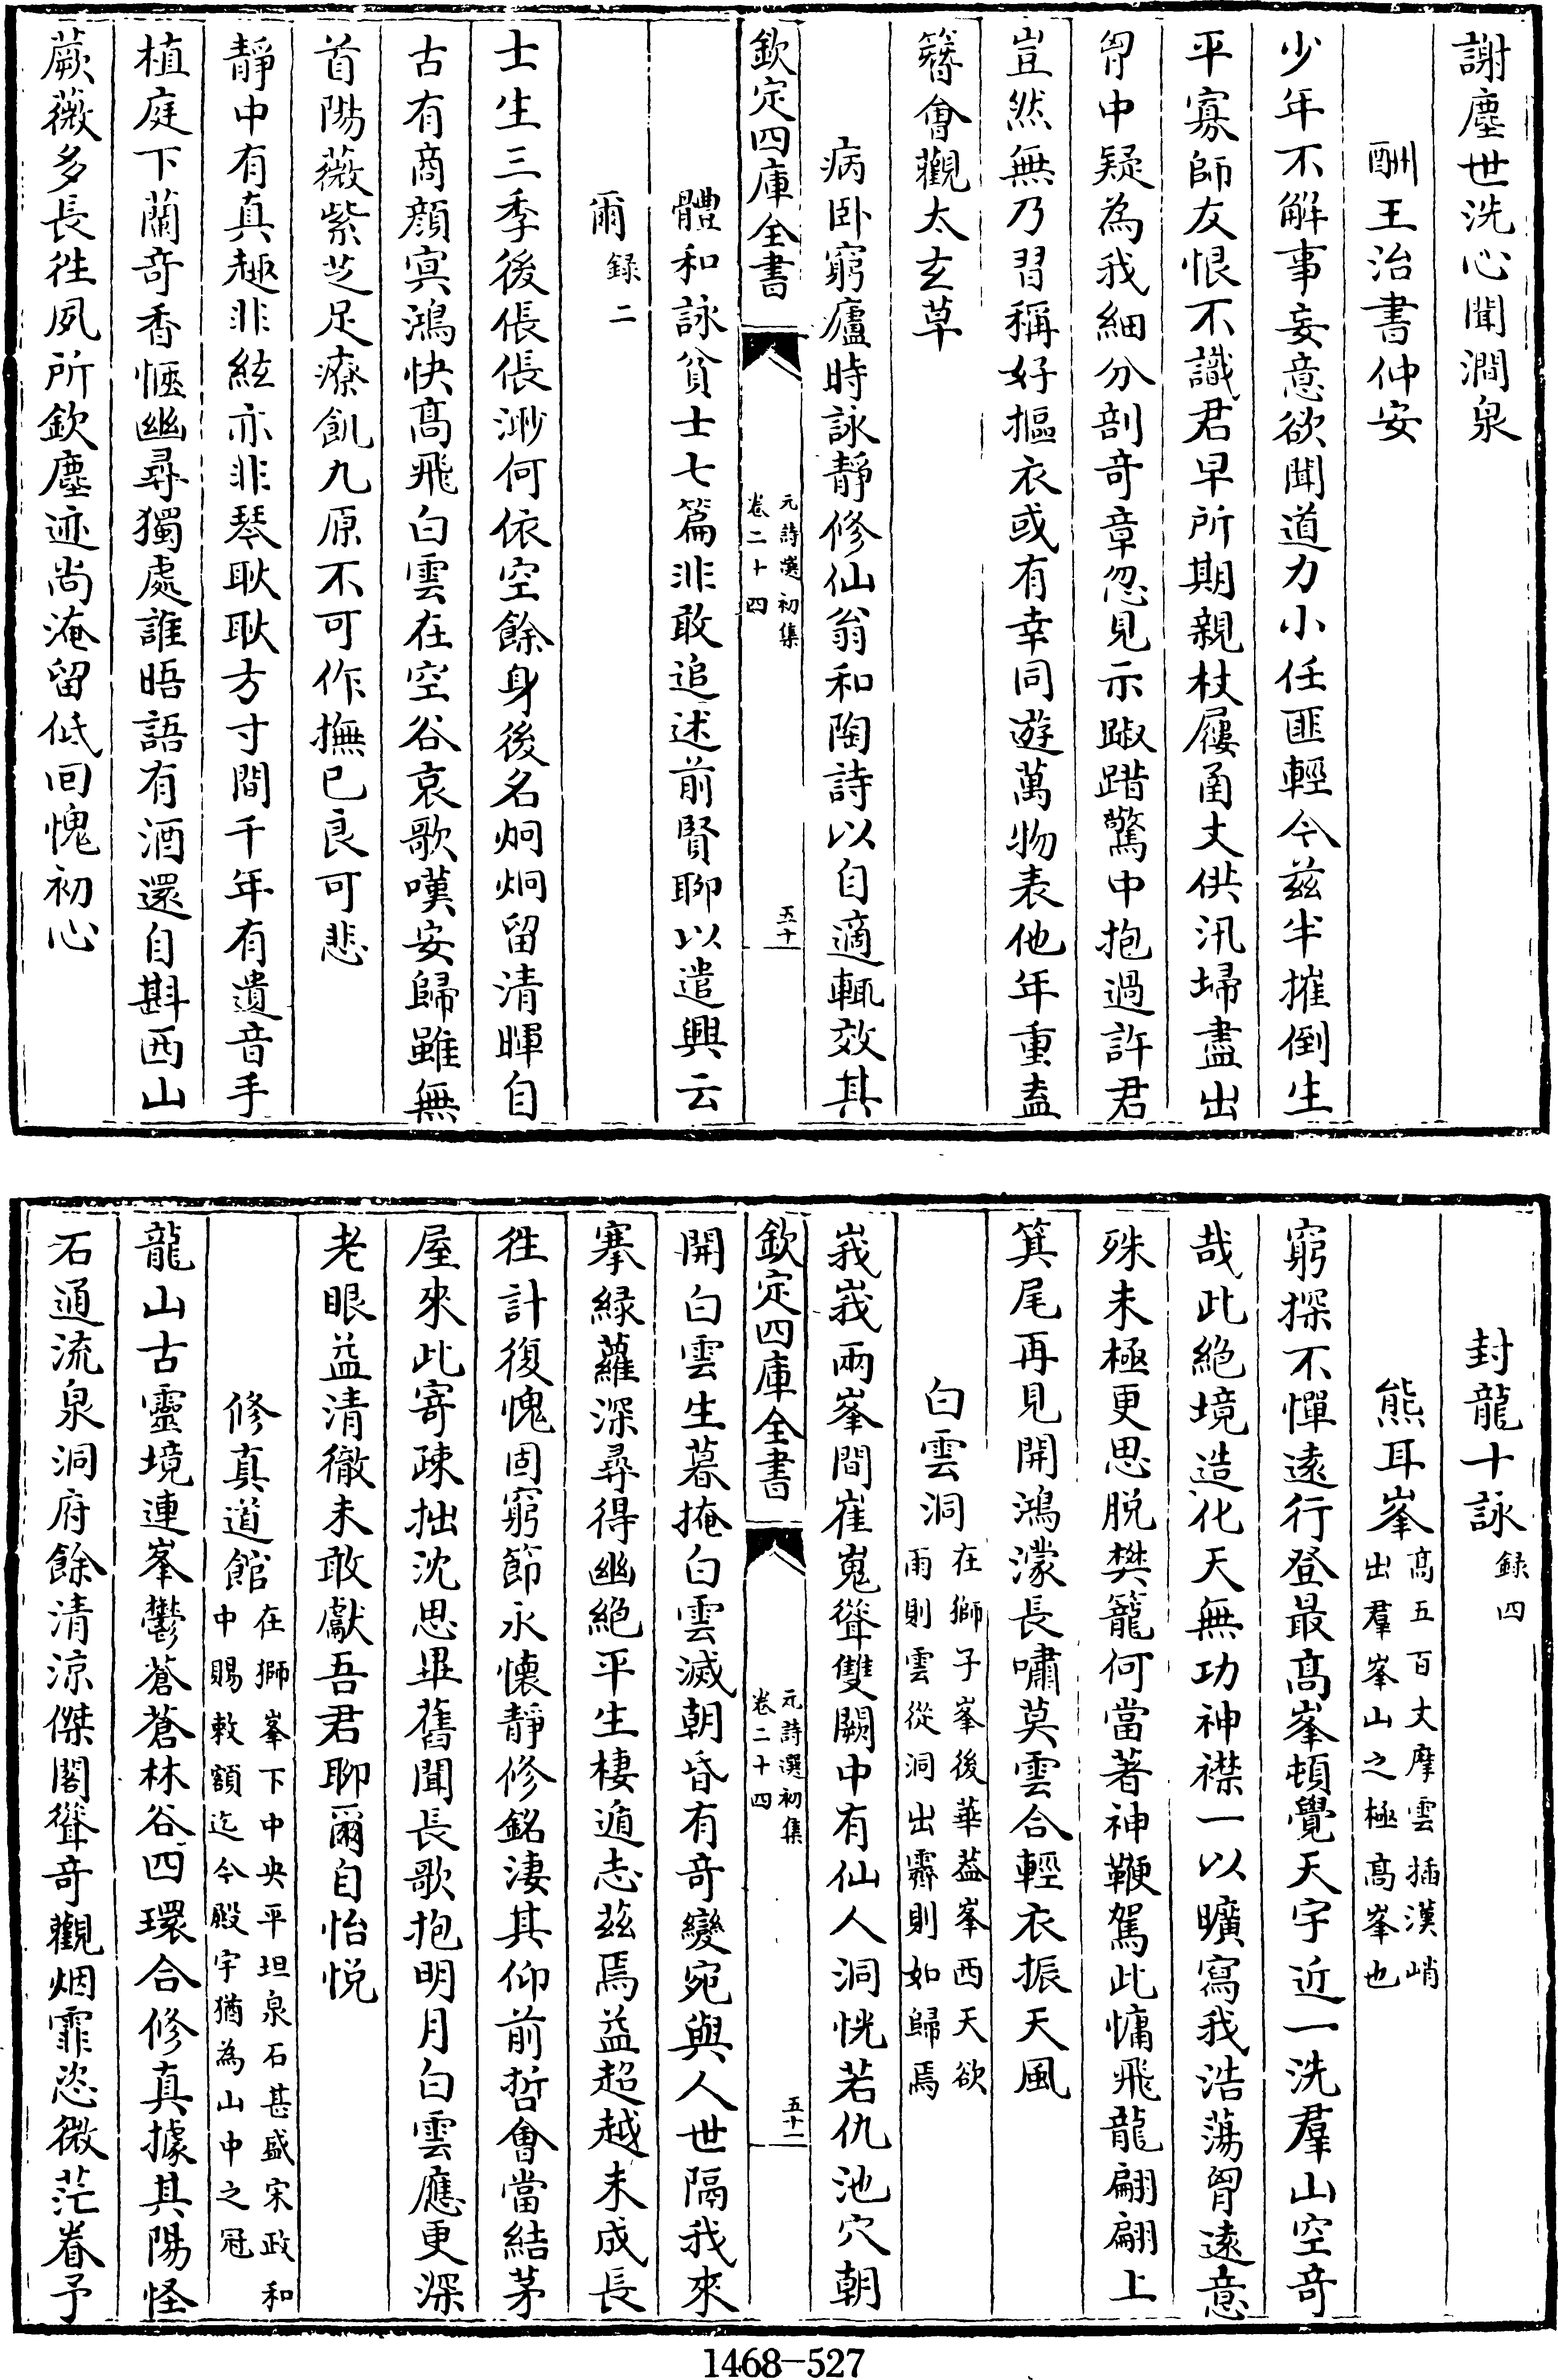 謝塵世洗心聞澗泉
酬王治書仲安
少年不解事妄意欲聞道力小任匪輕今兹半摧倒生
平寡師友恨不識君早所期親杖屨函丈供汛埽盡出
胷中疑為我細分剖奇章忽見示踧踖驚中抱過許君
豈然無乃習稱好摳衣或有幸同遊萬物表他年重盍
簪會觀太𤣥草
病卧窮廬時詠靜修仙翁和陶詩以自適輒效其
欽定四庫全書
元詩選初集
卷二十四
五十
體和詠貧士七篇非敢追述前賢聊以遣興云
爾録二
士生三季後倀倀渺何依空餘身後名炯炯留清暉自
古有商顔㝠鴻快髙飛白雲在空谷哀歌嘆安歸雖無
首陽薇紫芝足療飢九原不可作撫已良可悲
靜中有真趣非絃亦非琴耿耿方寸間千年有遺音手
植庭下蘭奇香愜幽尋獨處誰晤語有酒還自斟西山
蕨薇多長徃夙所欽塵迹尚淹留低回愧初心
封龍十詠録四
熊耳峯髙五百丈摩雲插漢峭
出羣峯山之極髙峯也
窮探不憚逺行登最髙峯頓覺天宇近一洗羣山空奇
哉此絶境造化天無功神襟一以曠寫我浩蕩胷逺意
殊未極更思脱樊籠何當著神鞭駕此慵飛龍翩翩上
箕尾再見開鴻濛長嘯莫雲合輕衣振天風
白雲洞在獅子峯後華葢峯西天欲
雨則雲從洞出霽則如歸焉
峩峩兩峯間崔嵬聳雙闕中有仙人洞恍若仇池穴朝
欽定四庫全書
元詩選初集
卷二十四
五十一
開白雲生暮掩白雲滅朝昏有奇變宛與人世隔我來
搴緑蘿深尋得幽絶平生棲遁志兹焉益超越未成長
徃計復愧固窮節永懷靜修銘淒其仰前哲會當結茅
屋來此寄疎拙沈思畢舊聞長歌抱明月白雲應更深
老眼益清徹未敢獻吾君聊爾自怡悦
修真道館在獅峯下中央平坦泉石甚盛宋政和
中賜敕額迄今殿宇猶為山中之冠
龍山古靈境連峯鬱蒼蒼林谷四環合修真據其陽怪
石通流泉洞府餘清涼傑閣聳奇觀烟霏恣微茫眷予
1468-527